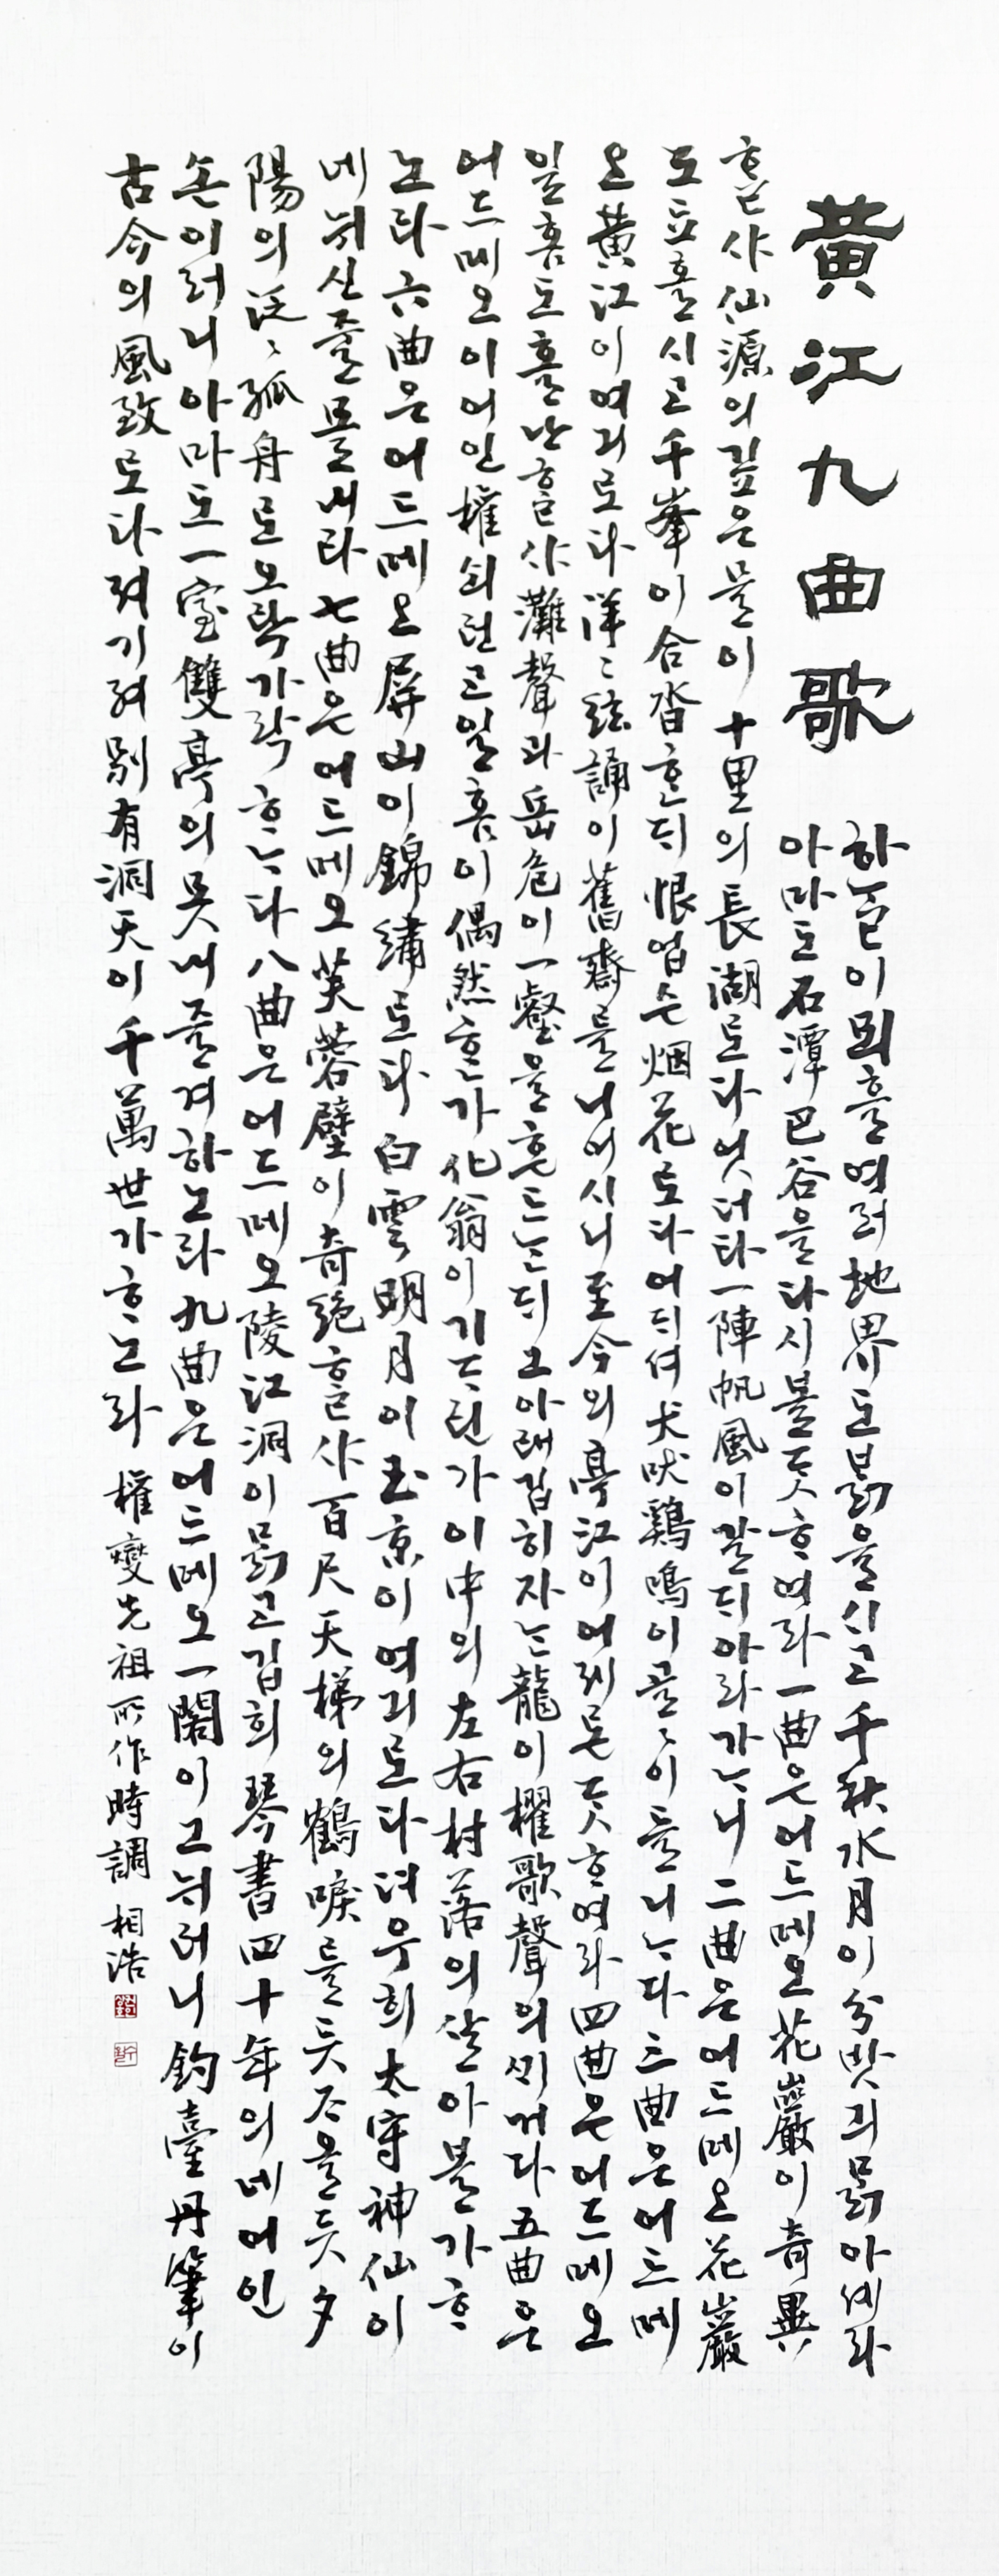 黃江九曲歌
하ᄂᆞᆯ이 뫼흘 여러 地界도 ᄇᆞᆰ을시고 千秋水月이 分밧긔 ᄆᆞᆰ아셰라
아마도 石潭巴谷을 다시 볼 ᄃᆞᆺᄒᆞ여라 一曲은 어드메오 花巖이 奇異
ᄒᆞᆯ샤 仙源의 깁은 물이 十里의 長湖로다 엇더타 一陣帆風이 갈ᄃᆡ 아라 가ᄂᆞ니 二曲은 어드메오 花巖
도 됴흘시고 千峯이 合沓ᄒᆞᆫᄃᆡ 恨업슨 烟花로다 어ᄃᆡ셔 犬吠鷄鳴이 골골이 들니ᄂᆞ다 三曲은 어드메
오 黃江이 여긔로다 洋洋絃誦이 舊齋를 니어시니 至今의 亭江이 어제론 ᄃᆞᆺᄒᆞ여라 四曲은 어드메오
일홈도 홀난ᄒᆞᆯ샤 灘聲과 岳危이 一壑을 흔드ᄂᆞᆫᄃᆡ 그 아래 깁히 자ᄂᆞᆫ 龍이 櫂歌聲의 ᄭᆡ거다 五曲은
어드메오 이 어인 權쇠런고 일홈이 偶然ᄒᆞᆫ가 化翁이 기ᄃᆞ린가 이 中의 左右村落의 살아볼가 ᄒᆞ
노라 六曲은 어드메오 屛山이 錦繡로다 白雲明月이 玉京이 여긔로다 뎌 우희 太守神仙이
네 뉘신 줄 몰내라 七曲은 어드메오 芙蓉壁이 奇絶ᄒᆞᆯ샤 百尺天梯의 鶴唳를 듯조올 듯 夕
陽의 泛泛孤舟로 오락가락 ᄒᆞᄂᆞ다 八曲은 어드메오 陵江洞이 ᄆᆞᆰ고 깁희 琴書四十年의 네 어인
손이러니 아마도 一室雙亭의 못내 즐겨 하노라 九曲은 어드메오 一閣이 그 뉘러니 釣臺丹筆이
古今의 風致로다 져기 져 別有洞天이 千萬世가 ᄒᆞ노라 權燮先祖所作時調 相浩